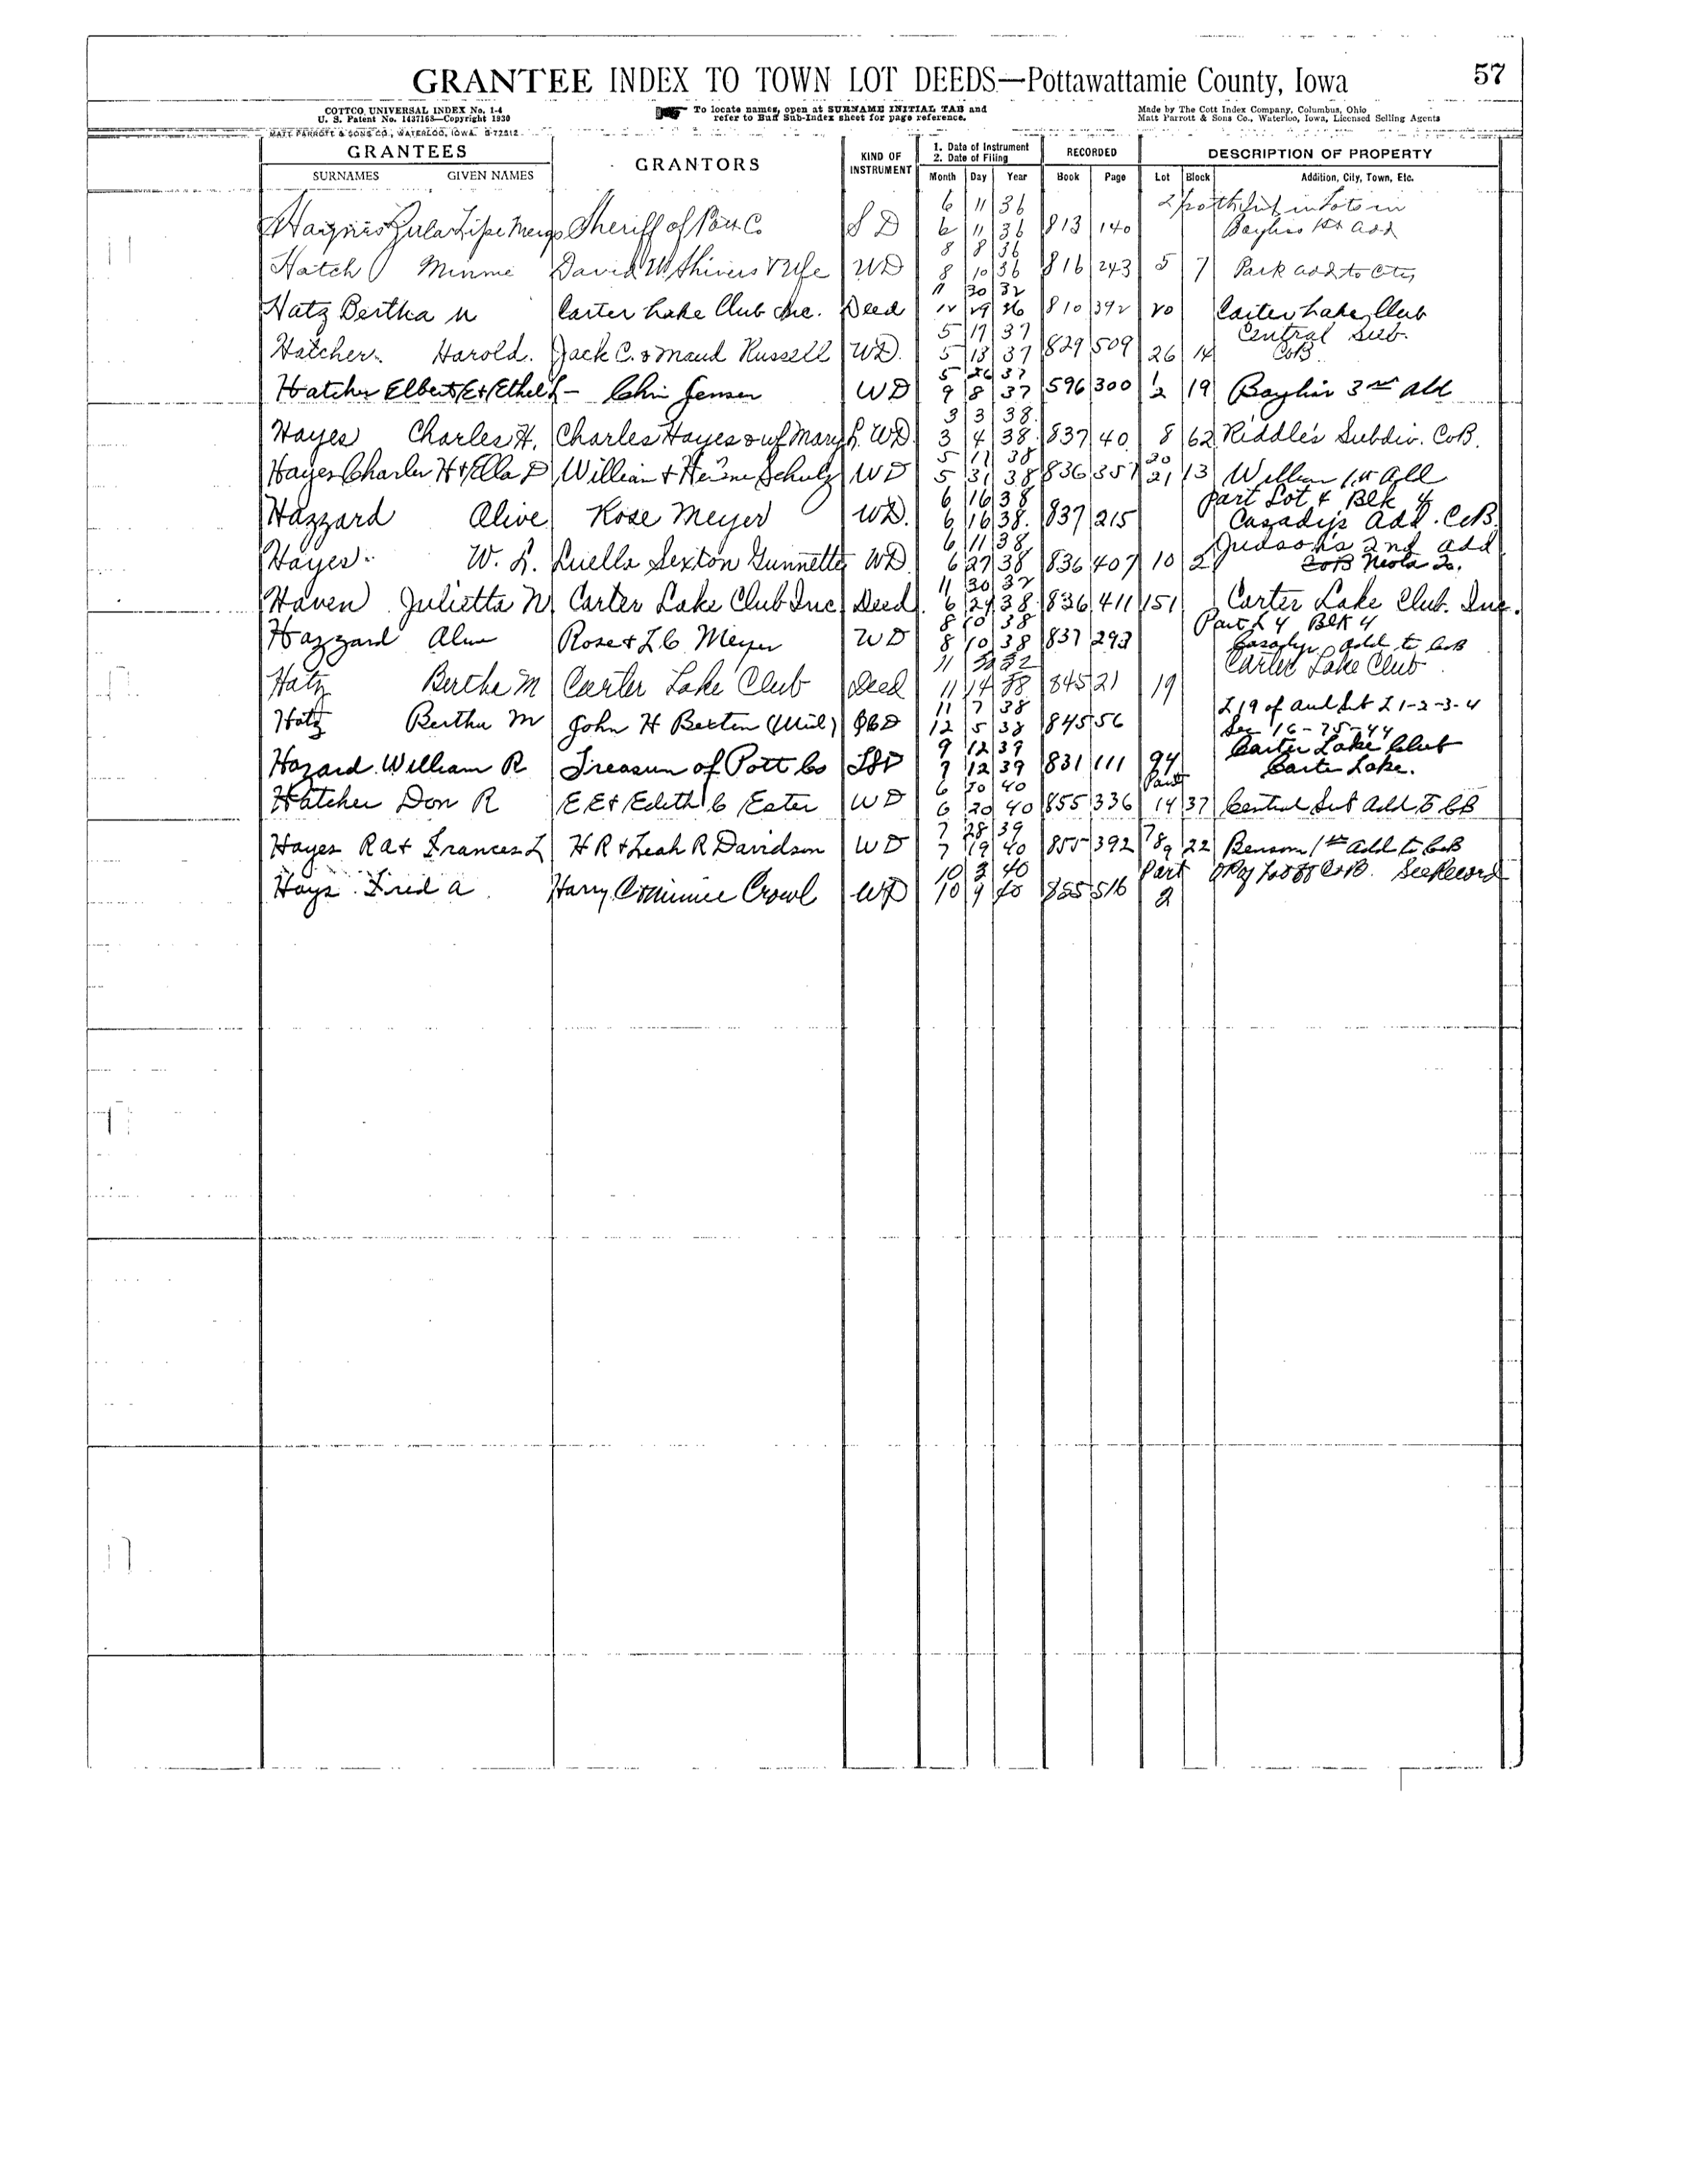 GRANTEE INDEX TO TOWN LOT DEEDS—Pottawattamie County, Iowa 57
COTTCO UNIVERSAL INDEX No. 1-4
U. S. Patent No. 1437168—Copyright 1930
To locate names, open at SURNAME INITIAL TAB and
refer to Buff Sub-Index sheet for page reference.
Made by The Cott Index Company, Columbus, Ohio
Matt Parrott & Sons Co., Waterloo, Iowa, Licensed Selling Agents
MATT PARROTT & SONS CO., WATERLOO, IOWA
GRANTEES GRANTORS KIND OF INSTRUMENT 1. Date of Instrument 2. Date of Filing RECORDED DESCRIPTION OF PROPERTY
SURNAMES GIVEN NAMES Month Day Year Book Page Lot Block Addition, City, Town, Etc.
6 11 36 in Lots in
Sheriff of Pott Co S D 6 11 36 813 140 Bayliss 1st add
8 8 36
Hatch Minnie David W. Shivers & Wife WD 8 10 36 816 243 5 7 Park add to City
11 30 32
Hatz Bertha M Carter Lake Club Inc. Deed 12 29 36 810 392 20 Carter Lake Club
5 17 37 Central Sub.
Hatcher Harold. Jack C. & Maud Russell WD. 5 18 37 829 509 26 14 CoB
5 26 37
Hatcher Elbert E & Ethel L - Chris Jensen WD 9 8 37 596 300 1/2 19 Bayliss 3rd Add
3 3 38.
Hayes Charles H. Charles Hayes & wf Mary L. WD. 3 4 38. 837 40 8 62 Riddle's Subdiv. CoB.
5 17 38 20
Hayes Charles H & Ella D William & Schulz WD 5 31 38 836 357 21 13 1st Add
6 16 38 part Lot 4 Blk 4
Hazzard Alive Rose Meyer WD. 6 16 38. 837 215 Casady's Add. CoB.
6 11 38 Judson's 2nd add
Hayes W. L. Luella Sexton Gunnette WD 6 27 38 836 407 10 2 CoB Neola Ia.
11 30 32
Haven Julietta N Carter Lake Club Inc. Deed. 6 29 38 836 411 151 Carter Lake Club. Inc.
8 10 38 Part L 4 Blk 4
Hazzard Rose & L C Meyer WD 8 10 38 837 293 Casadys add to CoB
11 30 32 Carter Lake Club
Hatz Bertha M Carter Lake Club Deed 11 14 38 845 21 19
11 7 38 L 19 of Aud Sub L 1-2-3-4
Hatz Bertha M John H QCD 12 5 38 845 56 Sec 16-75-44
9 12 39 Carter Lake Club
Hazard William R Treasurer of Pott Co TSD 9 12 39 831 111 94 Carter Lake.
6 20 40 Part
Hatcher Don R E E & Edith C Ester WD 6 20 40 855 336 14 37 Central Sub Add. to CB
7 28 39 7
Hayes R A & Frances L H R & Leah R Davidson WD 7 19 40 855 392 8 9 22 Benson 1st Add to CoB
10 3 40 Part CoB. See Record
Hays Fred A Harry C & Minnie Crowl WD 10 9 40 855 516 2